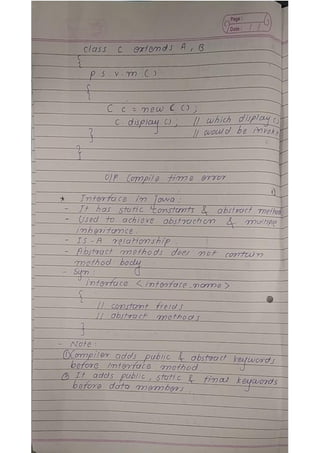 Page :
Date :
class C extends A, B
{
p s v.m ( )
{
C c = new C ( );
c display ( ); // which display ( )
} // would be invoke
}
O/P Compile time error
* Interface in Java :
- It has static constants & abstract method
- Used to achieve abstraction & multiple
inheritance.
- IS - A relationship.
- Abstract methods does not contain
method body
- Syn
interface < interface.name >
{
// constant fields
// abstract methods
}
- Note :
① Compiler adds public & abstract keywords
before interface method
② It adds public, static & final keywords
before data members.